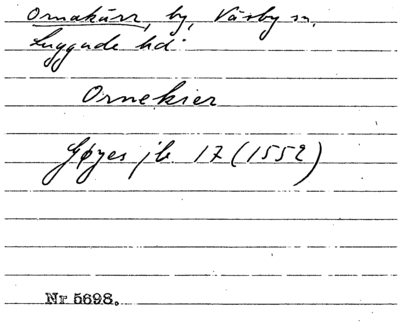 Ornakärr, by, Väsby sn,
Luggude hd
Ornekier
Gøyes jb 17 (1552)
Nr 5698.